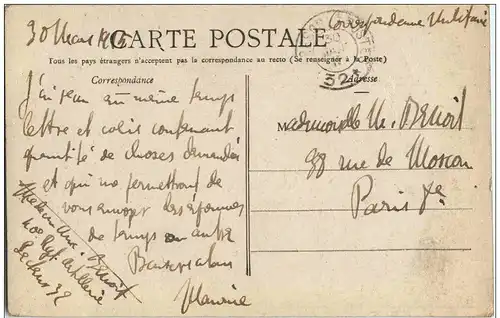 30 Mars 1915
Correspondance Militaire
CARTE POSTALE
Tous les pays étrangers n'acceptent pas la correspondance au recto (Se renseigner à la Poste)
Correspondance
Adresse
32
J'ai reçu en même temps
lettre et colis contenant
quantité de choses demandées
et qui me permettront de
vous envoyer les réponses
de temps en autre
Baisers
Maurice
Mademoiselle M. Benoit
98 rue de Moscou
Paris
Benoit
Artillerie
Secteur 32